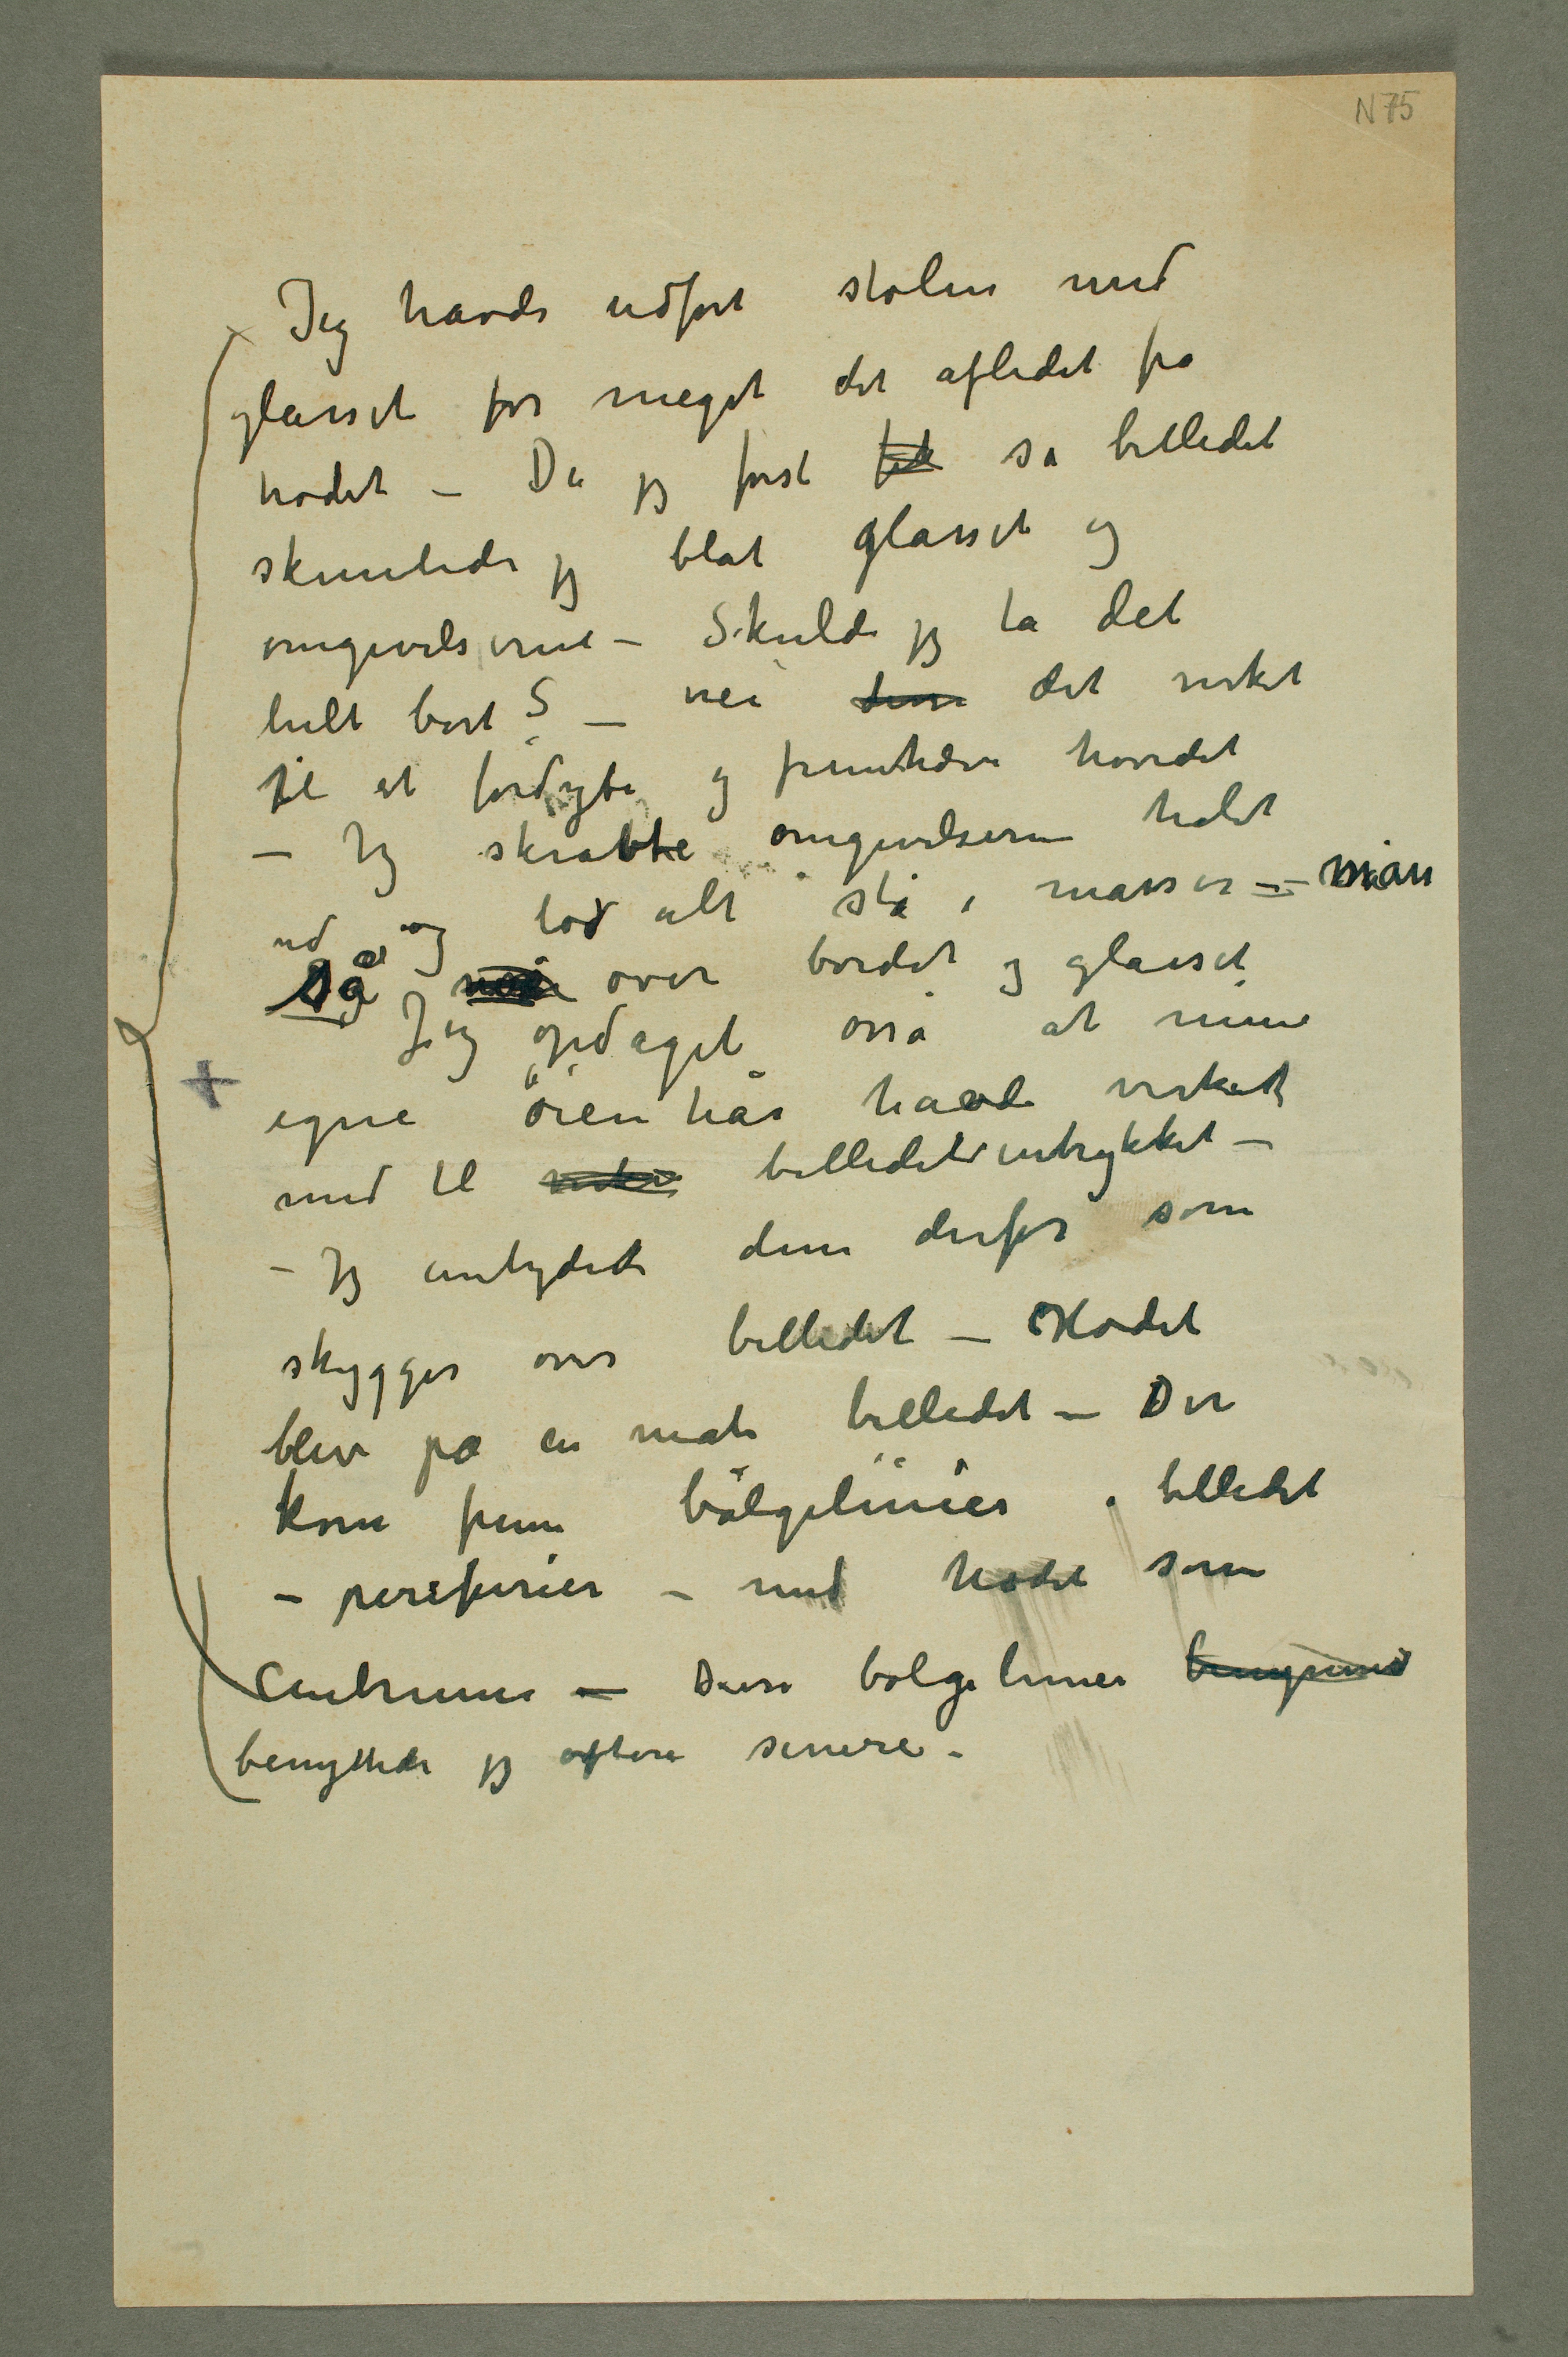 N 75
Jeg havde udført stolen med
glasset for meget det afledet fra
hodet – Da jeg først fik så billedet
skimtede jeg blåt glasset og
omgivelserne – Skulde jeg ta det
helt bort? – nei det virket
til at fordybe og fremhæve hovedet
– Jeg skrabte omgivelserne halvt
ud og lod alt stå i masser – man
så over bordet og glasset
Jeg opdaget osså at mine
+
egne öienhår havde virket
med til billedetsintrykket –
– Jeg antydet dem derfor som
skygger over billedet – Hodet
blev på en måte billedet – Der
kom frem bölgelinier i billedet
– periferier – med hodet som
Centrum – Disse bølgelinier
benyttede jeg oftere senere –